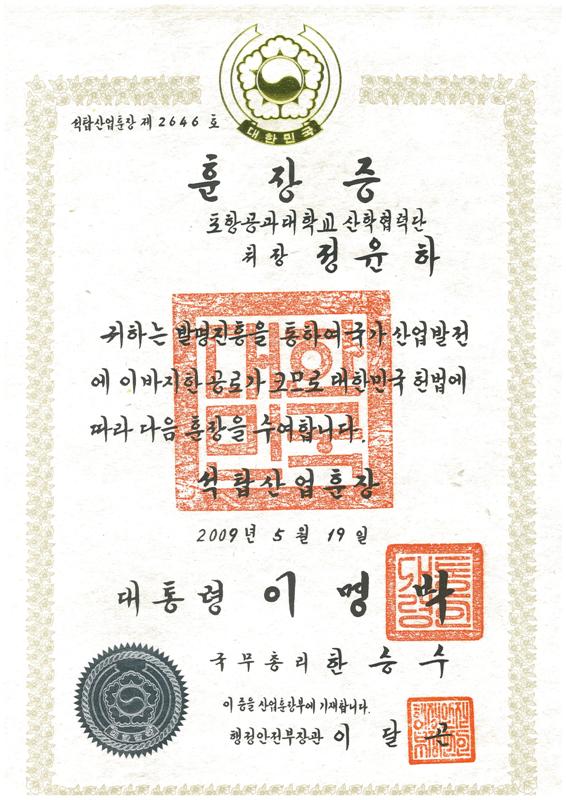 대한민국
석탑산업훈장 제 2646 호
훈장증
포항공과대학교 산학협력단
처장 정윤하
귀하는 발명진흥을 통하여 국가 산업발전
에 이바지한 공로가 크므로 대한민국 헌법에
따라 다음 훈장을 수여합니다.
석탑산업훈장
2009년 5월 19일
대통령 이명박
국무총리 한승수
이 증을 산업훈장부에 기재합니다.
행정안전부장관 이달곤